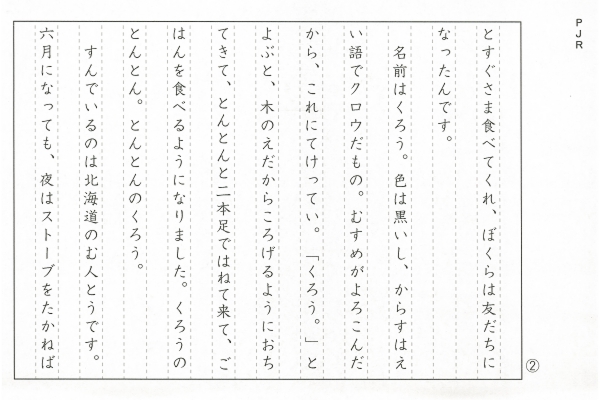 PJR
とすぐさま食べてくれ、ぼくらは友だちに
なったんです。
名前はくろう。色は黒いし、からすはえ
い語でクロウだもの。むすめがよろこんだ
から、これにてけってい。「くろう。」と
よぶと、木のえだからころげるようにおち
てきて、とんとんと二本足ではねて来て、ご
はんを食べるようになりました。くろうの
とんとん。とんとんのくろう。
すんでいるのは北海道のむ人とうです。
六月になっても、夜はストーブをたかねば
②